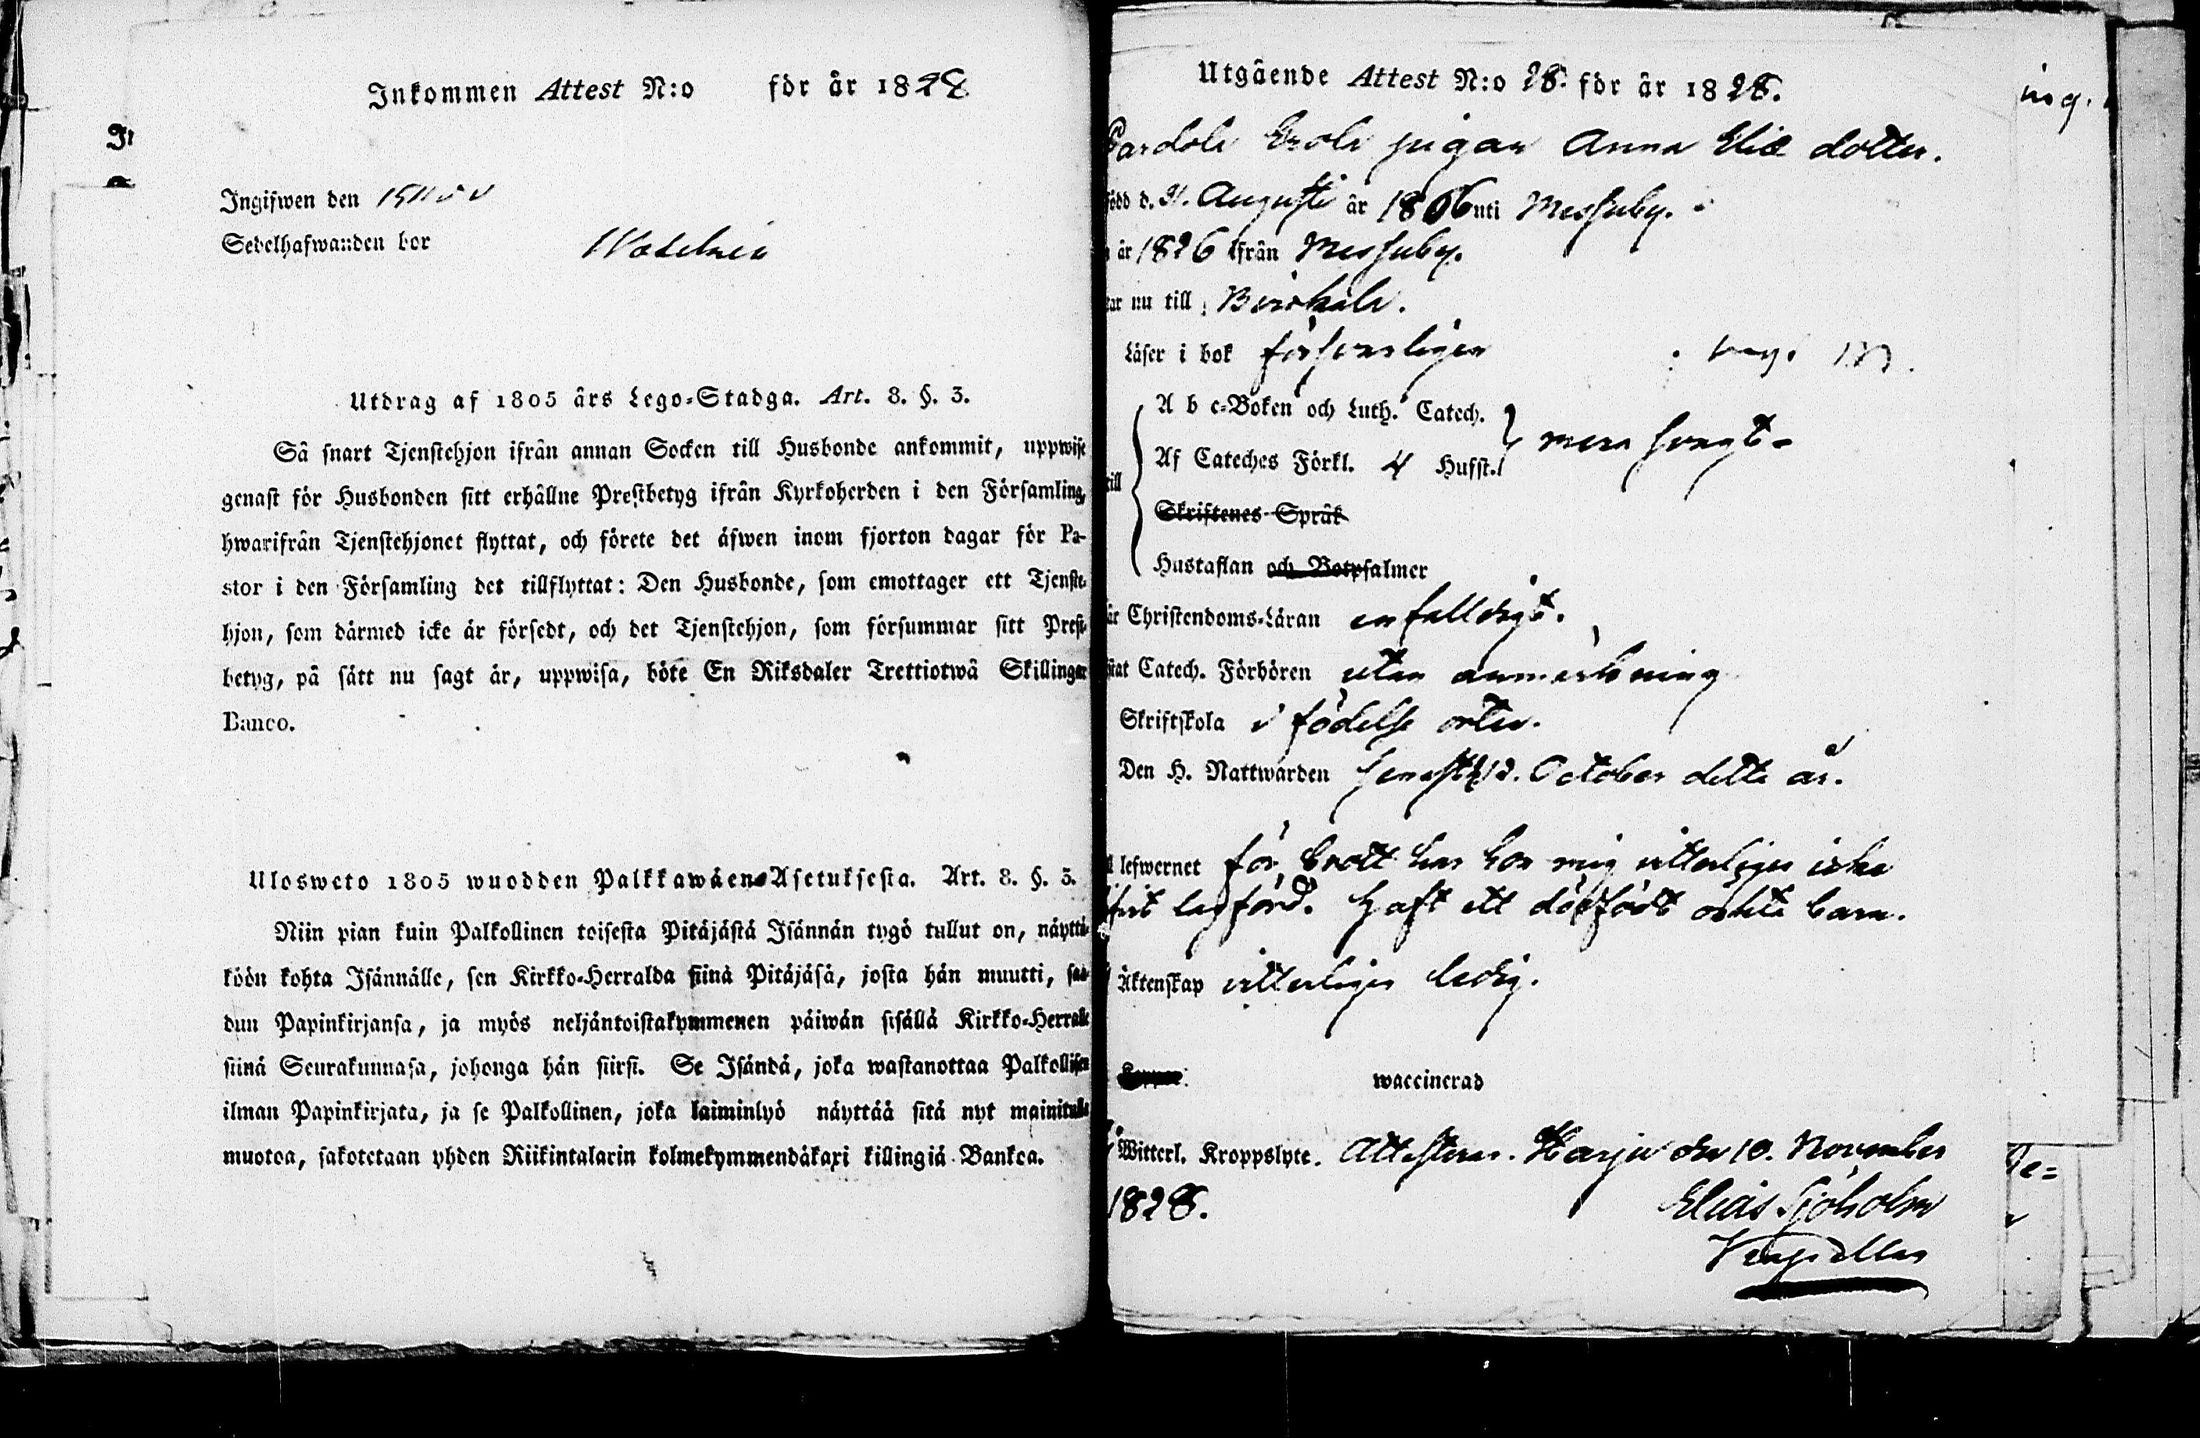 Inkommen Attest N:o för år 1828
Ingifwen den 15 Nov
Sedelhafwanden bor
Utdrag af 1805 års Lego-Stadga. Art. 8. §. 3.
Så snart Tjenstehjon ifrån annan Socken till Husbonde ankommit, uppwise
genast för Husbonden sitt erhållne Prestbetyg ifrån Kyrkoherden i den Församling,
hwarifrån Tjenstehjonet flyttat, och förete det äfwen inom fjorton dagar för Pa-
stor i den Församling det tillflyttat: Den Husbonde, som emottager ett Tjenste-
hjon, som därmed icke är försedt, och det Tjenstehjon, som försummar sitt Prest-
betyg, på sätt nu sagt är, uppwisa, böte En Riksdaler Trettiotwå Skillingar
Banco.
Ulosweto 1805 wuodden Palkkawäen-Asetuksesta. Art. 8. §. 3.
Niin pian kuin Palkollinen toisesta Pitäjästä Isännän tygö tullut on, näyttä-
köön kohta Isännälle, sen Kirkko-Herralda siinä Pitäjäsä, josta hän muutti, saa-
dun Papinkirjansa, ja myös neljäntoistakymmenen päiwän sisällä Kirkko-Herralle
siinä Seurakunnasa, johonga hän siirsi. Se Isändä, joka wastanottaa Palkollisen
ilman Papinkirjata, ja se Palkollinen, joka laiminlyö näyttää sitä nyt mainitulla
muotoa, sakotetaan yhden Riikintalarin kolmekymmendäkaxi killingiä Bankoa.
Utgående Attest N:o 28. för år 1828.
pigan Anna Eliæ dotter.
född d. 21. Augusti år 1806 uti Messuby.
år 1826 ifrån Messuby.
nu till Birkala.
Läser i bok försvarligen
A b c-Boken och Luth. Catech.
Af Cateches Förkl. 4 Hufst. mera svagt
till
Skriftenes Språk
Hustaflan och Botpsalmer
Christendoms-Läran enfalldigt.
Catech. Förhören utan anmärkning
Skriftskola i födelse orten.
Den H. Nattwarden senast d. 12. October detta år.
lefwernet för brott har hon mig vitterligen icke
lagförd. Haft ett dödfödt oäkta barn.
Äktenskap vitterligen ledig.
waccinerad
Witterl. Kroppslyte. Attesterar. Harju den 10. November
1828.
Elias Sjöholm